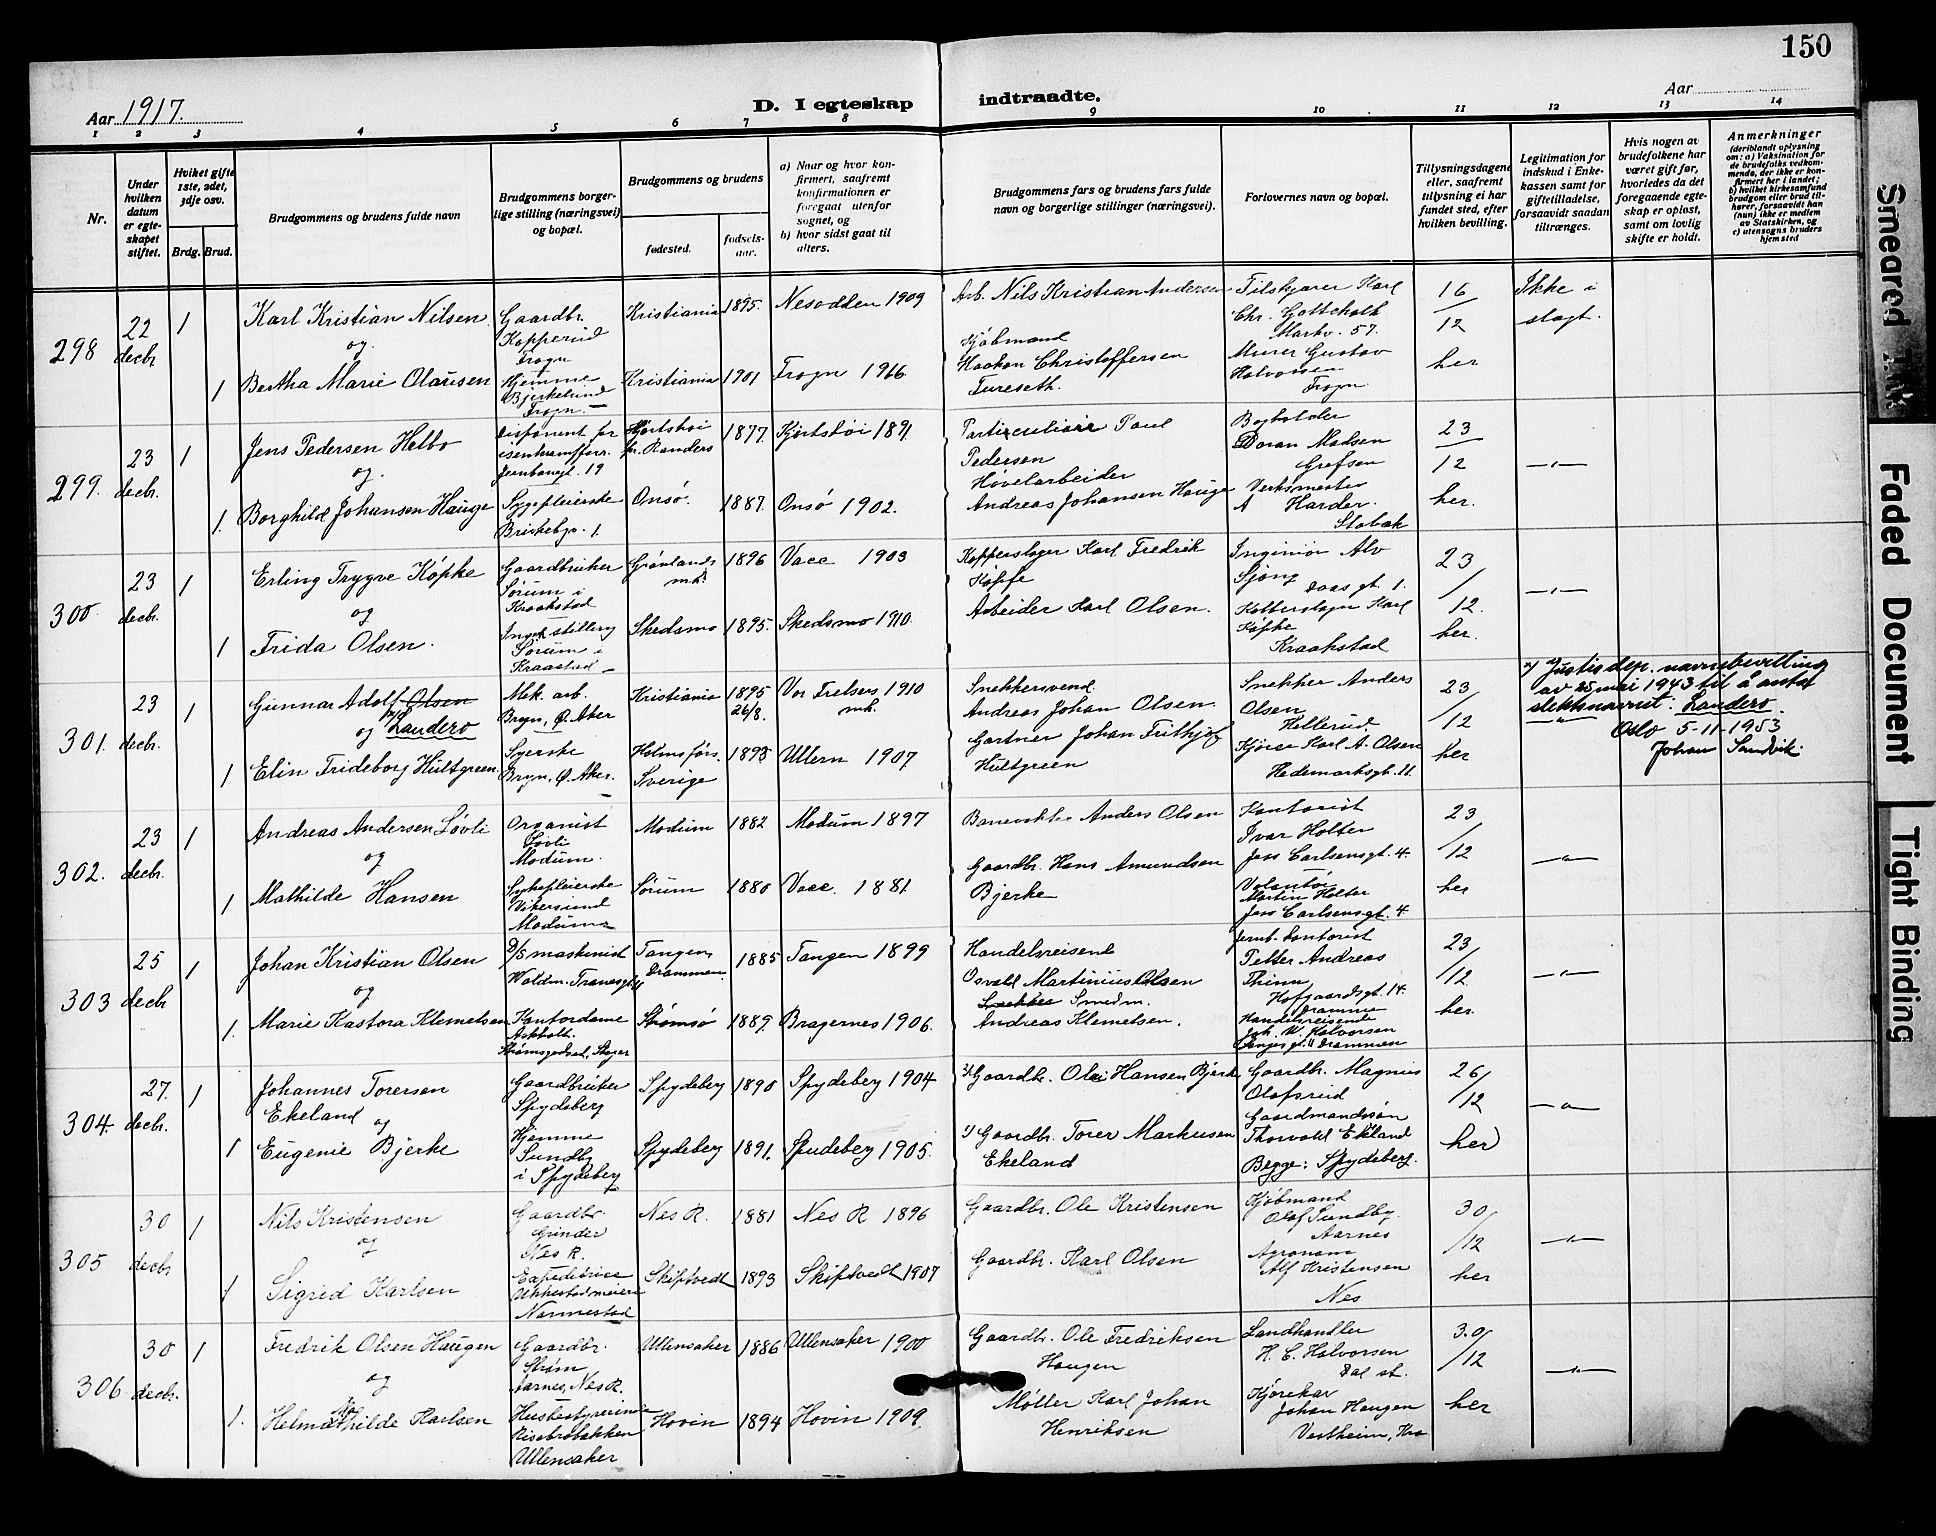 150
Aar 1917.
D. I egteskap indtraadte.
Aar
1 2 3 4 5 6 7 8 9 10 11 12 13 14
Nr.
Under hvilken datum er egteskapet stiftet.
Hviket gifte 1ste, 2det, 3dje osv.
Brdg. Brud.
Brudgommens og brudens fulde navn
Brudgommens borgerlige stilling (næringsvei) og bopæl.
Brudgommens og brudens
fødested.
fødselsaar.
a) Naar og hvor konfirmert, saafremt konfirmationen er foregaat utenfor sognet, og
b) hvor sidst gaat til alters.
Brudgommens fars og brudens fars fulde navn og borgerlige stillinger (næringsvei).
Forlovernes navn og bopæl.
Tillysningsdagene eller, saafremt tillysning ei har fundet sted, efter hvilken bevilling.
Legitimation for indskud i Enkekassen samt for giftetilladelse, forsaavidt saadan tiltrænges.
Hvis nogen av brudefolkene har været gift før, hvorledes da det foregaaende egteskap er opløst, samt om lovlig skifte er holdt.
Anmerkninger
(deriblandt oplysning om: a) Vaksination for de brudefolks vedkommende, der ikke er konfirmert her i landet;
b) hvilket kirkesamfund brudgom eller brud tilhører, forsaavidt han (hun) ikke er medlem av Statskirken, og
c) utensogns bruders hjemsted
298
22 decbr.
1
Karl Kristian Nilsen
og
1 Bertha Marie Olausen
Gaardbr.
Kopperud
Frogn
Hjemme
Bjerkelund
Frogn.
Kristiania 1895. Nesodden 1909
Kristiania 1901 Frogn 1916
Arb. Nils Kristian Andersen
Kjøbmand
Haakon Christoffersen
Tureseth.
Tilskjærer Karl
Chr. Gottschalk
Markv. 57.
Murer Gustav
Halvorsen
Frogn.
16/12
her
Ikke i
slegt.
299.
23 decbr.
1
Jens Pedersen Helbo
og
1. Borghild Johansen Hauge
Disponent for
Jernbanegt. 19
Sygepleierske
Briskeby. 1.
pr. Randers
1877. 1891.
Onsø. 1887. Onsø 1902.
Paul
Pedersen
Høvelarbeider
Andreas Johansen Hauge
Bogholder
Madsen
Grefsen
Verksmester
A Harder.
Slobak
23/12
her.
—"—
300.
23 decbr.
1
Erling Trygve Köpke
og
1 Frida Olsen.
Gaardbruker
Sørum i
Kraakstad
Ingen stilling
Sørum i
Kraakstad
Grønlands mk. 1896 Vacc 1903
Skedsmo 1895. Skedsmo 1910.
Kopperslager Karl Fredrik
Köpke
Arbeider Karl Olsen.
Ingeniør Alv
Sjong
Daasgt 1.
Karl
Köpke
Kraakstad
23/12.
her.
—"—
301.
23 decbr.
1
Gunnar Adolf Olsen
og Landero
1 Elin Frideborg Hultgreen
Mek. arb.
Bryn, Ø. Aker
Syerske
Bryn, Ø. Aker.
Kristiania 1895 26/8. Vor Frelsers mk. 1910
Holmsfors. Sverige 1893 Ullern 1907
Snekkersvend.
Andreas Johan Olsen
Gartner Johan Frithjof
Hultgreen
Snekker Anders
Olsen
Hellerud.
Kjører Karl A. Olsen
Hedemarksgt. 11.
23/12
her
—"—
Justisdep. navnebevilling
av 25 mai 1943 til å anta
slektsnavnet: Landero.
Oslo 5-11-1953
Johan Sandvik.
302.
23 decbr.
1
Andreas Andersen Løvli
og
1 Mathilde Hansen
Organist
Løvli
Modum.
Sykepleierske
Vikersund
Modum
Modum 1882 Modum 1897
Sørum 1880 Vacc. 1881
Banevokter Anders Olsen
Gaardbr. Hans Amundsen
Bjerke
Kontorist
Ivar Holter
Jess Carlsensgt. 4.
Volontør
Martin Holter
Jess Carlsensgt. 4
23/12
her
—"—
303
25 decbr
1
Johan Kristian Olsen
og
1. Marie Kastora Klemetsen
D/S maskinist
Woldm. Tranesgt.
Kontordame
Strømsgodset, Skoger
Tangen, Drammen 1885 Tangen 1899
Strømsø 1889. Bragernes 1906.
Handelsreisende
Osvald Martinius Olsen
Snekker Smedm.
Andreas Klemetsen.
Jernb. kontorist
Petter Andreas
Thinn
Hofgaardsgt. 14.
Drammen
Handelsreisende
Joh. W. Halvorsen
Drammen
23/12
her
—"—
304.
27. decbr.
1
Johannes Torersen
Ekeland
og
1 Eugenie Bjerke
Gaardbruker
Spydeberg
Hjemme
Sundby
i Spydeberg
Spydeberg 1890 Spydeberg 1904
Spydeberg 1891. Spydeberg 1905.
2) Gaardbr. Ole Hansen Bjerke
1) Gaardbr. Torer Markusen
Ekeland
Gaardbr. Magnus
Olafsrud
Gaardmandssøn
Thorvald Ekeland
Begge: Spydeberg.
26/12
her
—"—
305
30 decbr
1
Nils Kristensen
og
1 Sigrid Karlsen
Gaardbr.
Grinder
Nes R.
Expeditrice
Nannestad
Nes R. 1881 Nes R 1896
Skiptvedt 1893 Skiptvedt 1907
Gaardbr. Ole Kristensen
Gaardbr. Karl Olsen
Kjøbmand
Olaf Sundby.
Aarnes
Agronom
Alf Kristensen
Nes
30/12
her
—"—
306.
30 decbr.
1
Fredrik Olsen Haugen
og
1. Helma Mathilde Karlsen
Gaardbr.
Strøm
Aarnes, Nes R.
Husbestyrerinne
Risebrobakken
Ullensaker
Ullensaker 1886 Ullensaker 1900
Hovin 1894 Hovin 1909.
Gaardbr. Ole Fredriksen
Haugen
Møller Karl Johan
Henriksen
Landhandler
H. C. Halvorsen
Dal st.
Kjørekar
Johan Haugen
Vestheim, Kra
30/12
her
—"—
Smeared Ink
Faded Document
Tight Binding